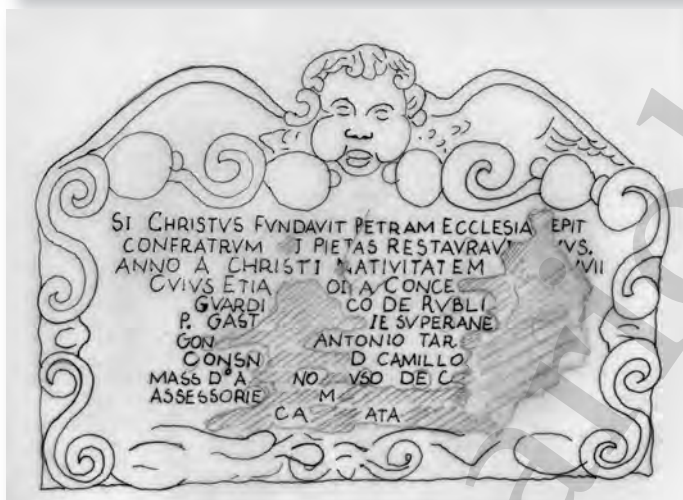 SI CHRISTVS FVNDAVIT PETRAM ECCLESIA EPIT
CONFRATRVM I PIETAS RESTAVRAV VS.
ANNO A CHRISTI NATIVITATEM VII
CVIVS ETIA ODIA CONCE
GVARDI CO DE RVBLI
P. GAST IE SVPERANE
GON ANTONIO TAR.
CONSN D CAMILLO
MASS D° A NO VSO DE C
ASSESSORIE M
CA ATA